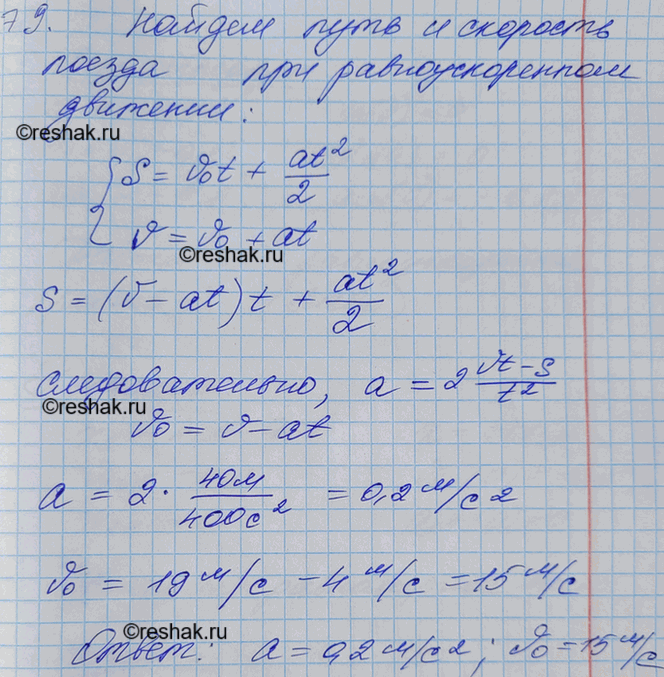 79. Найдем путь и скорость
поезда при равноускоренном
движении:
©reshak.ru
S = v₀t + at²/2
v = v₀ + at
©reshak.ru
s = (v - at)t + at²/2
следовательно, a = 2 (vt - s)/t²
©reshak.ru
v₀ = v - at
a = 2 · 40м/400с² = 0,2 м/с2
v₀ = 19 м/с - 4 м/с = 15 м/с
©reshak.ru
Ответ: a = 0,2 м/с2; v₀ = 15 м/с